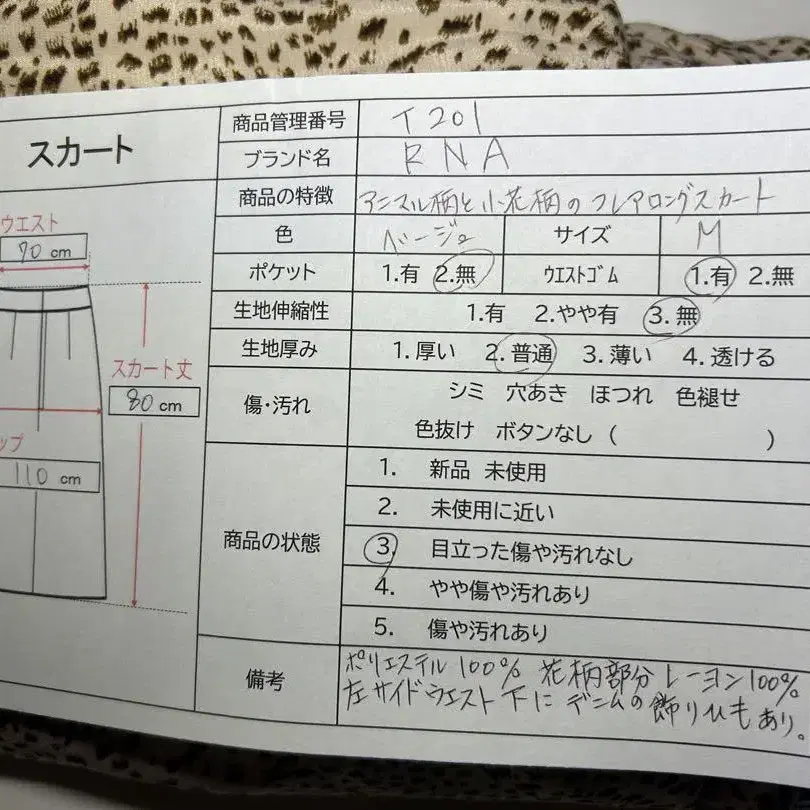 スカート
ウエスト
70 cm
スカート丈
80 cm
ップ
110 cm
商品管理番号 T201
ブランド名 RNA
商品の特徴 アニマル柄と小花柄のフレアロングスカート
色 ベージュ サイズ M
ポケット 1.有 2.無 ウエストゴム 1.有 2.無
生地伸縮性 1.有 2.やや有 3.無
生地厚み 1.厚い 2.普通 3.薄い 4.透ける
傷・汚れ シミ 穴あき ほつれ 色褪せ
色抜け ボタンなし ( )
商品の状態
1. 新品 未使用
2. 未使用に近い
3. 目立った傷や汚れなし
4. やや傷や汚れあり
5. 傷や汚れあり
備考 ポリエステル100% 花柄部分レーヨン100%
左サイドウエスト下にデニムの飾りひもあり。